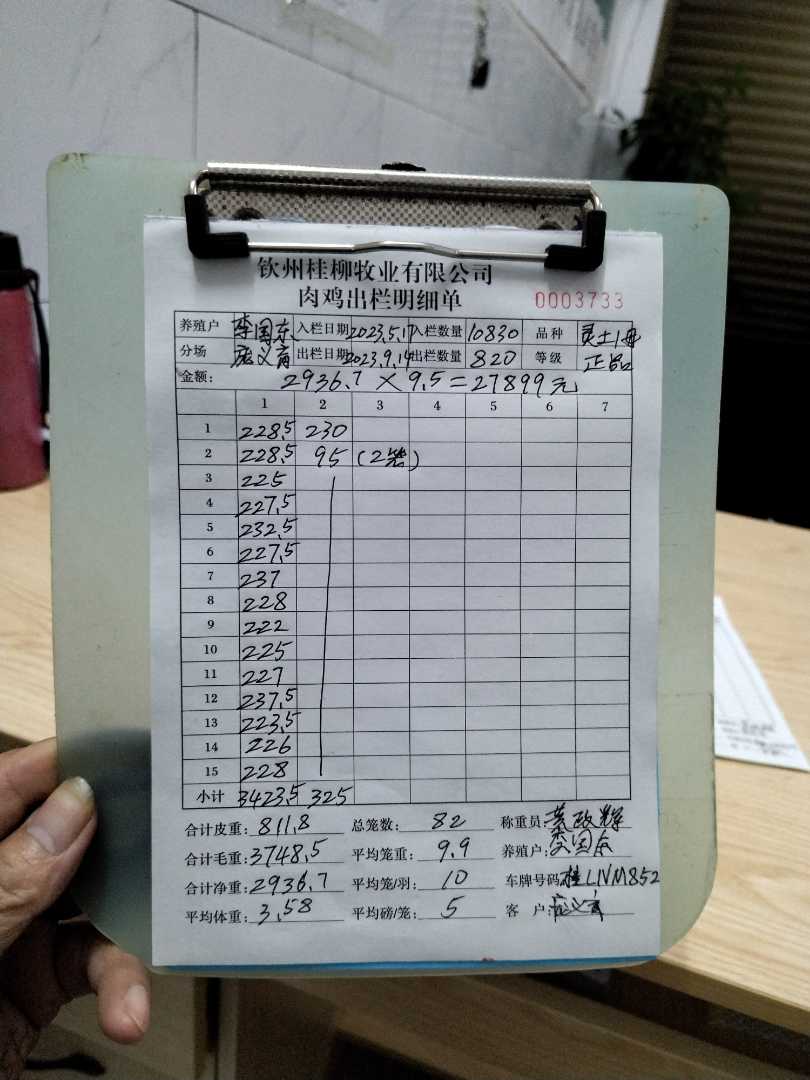 钦州桂柳牧业有限公司
肉鸡出栏明细单 0003733
养殖户 李国东 入栏日期 2023.5.17 入栏数量 10830 品种 灵土1母
分场 出栏日期 2023.9.14 出栏数量 820 等级 正品
金额: 2936.7 × 9.5 = 27899元
1 2 3 4 5 6 7
1 228.5 230
2 228.5 95 (2笼)
3 225
4 227.5
5 232.5
6 227.5
7 237
8 228
9 222
10 225
11 227
12 237.5
13 223.5
14 226
15 228
小计 3423.5 325
合计皮重: 811.8 总笼数: 82 称重员: 黄政辉
合计毛重: 3748.5 平均笼重: 9.9 养殖户: 李国东
合计净重: 2936.7 平均笼/羽: 10 车牌号码: 桂LNM852
平均体重: 3.58 平均磅/笼: 5 客 户: